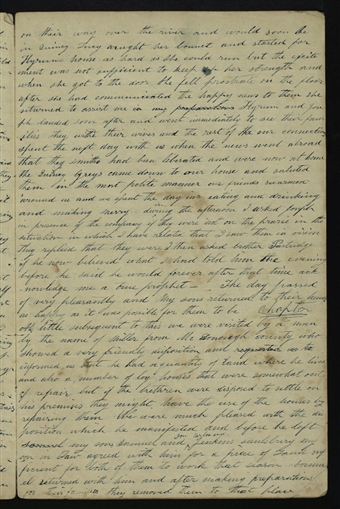 on their way over the river and would soon be
in Quincy Lucy caught her bonnet and started for
Hyrums house as hard as she could run but the excite
ment was not sufficient to keep up her strength and
when she got to the door she fell prostrate on the floor
after she had communicated the happy news to them she
returned to assist me in my preparations Hyrum and Jose
ph landed soon after and went immediately to see their fam
ilies they with their wives and the rest of the our connection
spent the next day with us when the news went abroad
that the smiths had been liberated and were now at home
the Quincy Greys came down to our house and saluted
them in the most polite manner our friends
around us and we spent the day in eating and drinking
and making merry during the afternoon I asked Joseph
in presence of the company if they were not on the prairie in the
situation in which I have related that I saw them in vision
they replied that they were I then asked brother Partridge
if he now believed what I had told him the evening
before he said he would forever after that time ack
nowledge me a true prophet The day passed
off very pleasantly and my sons returned to their homes
as happy as it was possible for them to be Chapter
A little subsequent to this we were visited by a man
by the name of Miller from Mc Donough county who
showed a very friendly disposition and us
informed us that he had a quantity of land where he lived
and also a number of log houses that were somewhat out
of repair but if the brethren were disposed to settle on
his premises they might have the use of the houses by
repairing them We were much pleased with the dis
position which he manifested and before he left
my son Samuel and Jenkins Saulsbury my
son in Law agreed with him for a piece of Land suf
ficient for both of them to work that season Samu
el returned with him and after making preparations
they removed them to that place